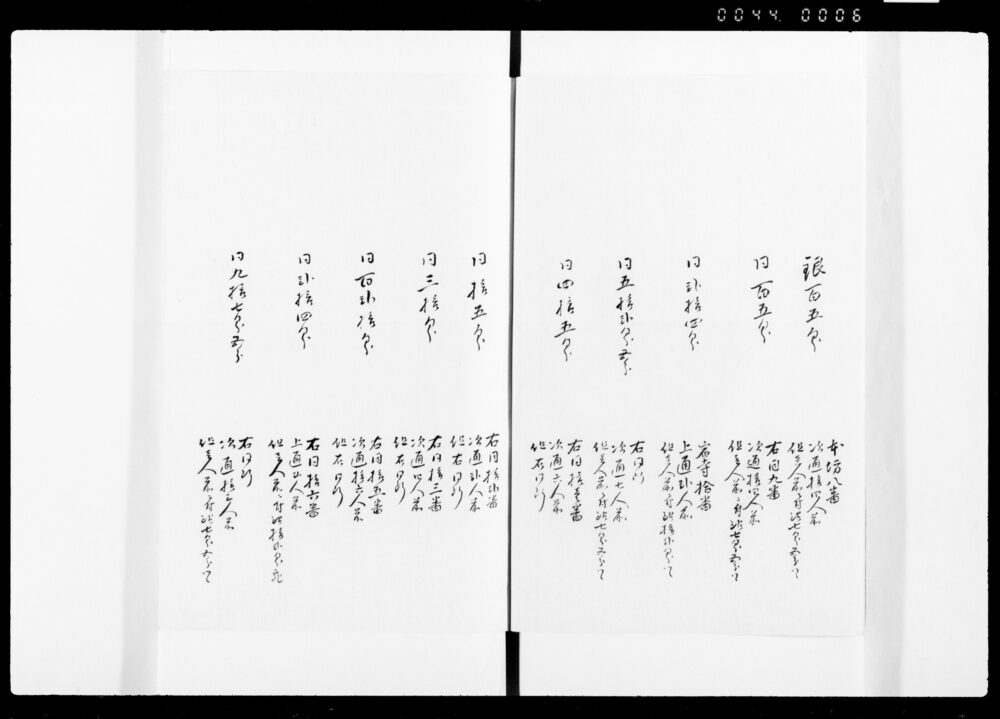 0044. 0006
銀百五匁
本坊八番
次通拾四人前
但壱人前ニ付銀七匁五分ツヽ
同百五匁
右同九番
次通拾四人前
但壱人前ニ付銀七匁五分ツヽ
同弐拾四匁
寺拾番
上通弐人前
但壱人前ニ付銀拾弐匁ツヽ
同五拾弐匁五分
右同所
次通七人前
但壱人前ニ付銀七匁五分ツヽ
同四拾五匁
右同拾壱番
次通六人前
但右同断
同拾五匁
右同拾弐番
次通弐人前
但右同断
同三拾匁
右同拾三番
次通四人前
但右同断
同百弐拾匁
右同拾五番
次通拾六人前
但右同断
同弐拾四匁
右同拾六番
上通弐人前
但壱人前ニ付銀拾弐匁宛
同九拾七匁五分
右同所
次通拾三人前
但壱人前ニ付銀七匁五分ツヽ